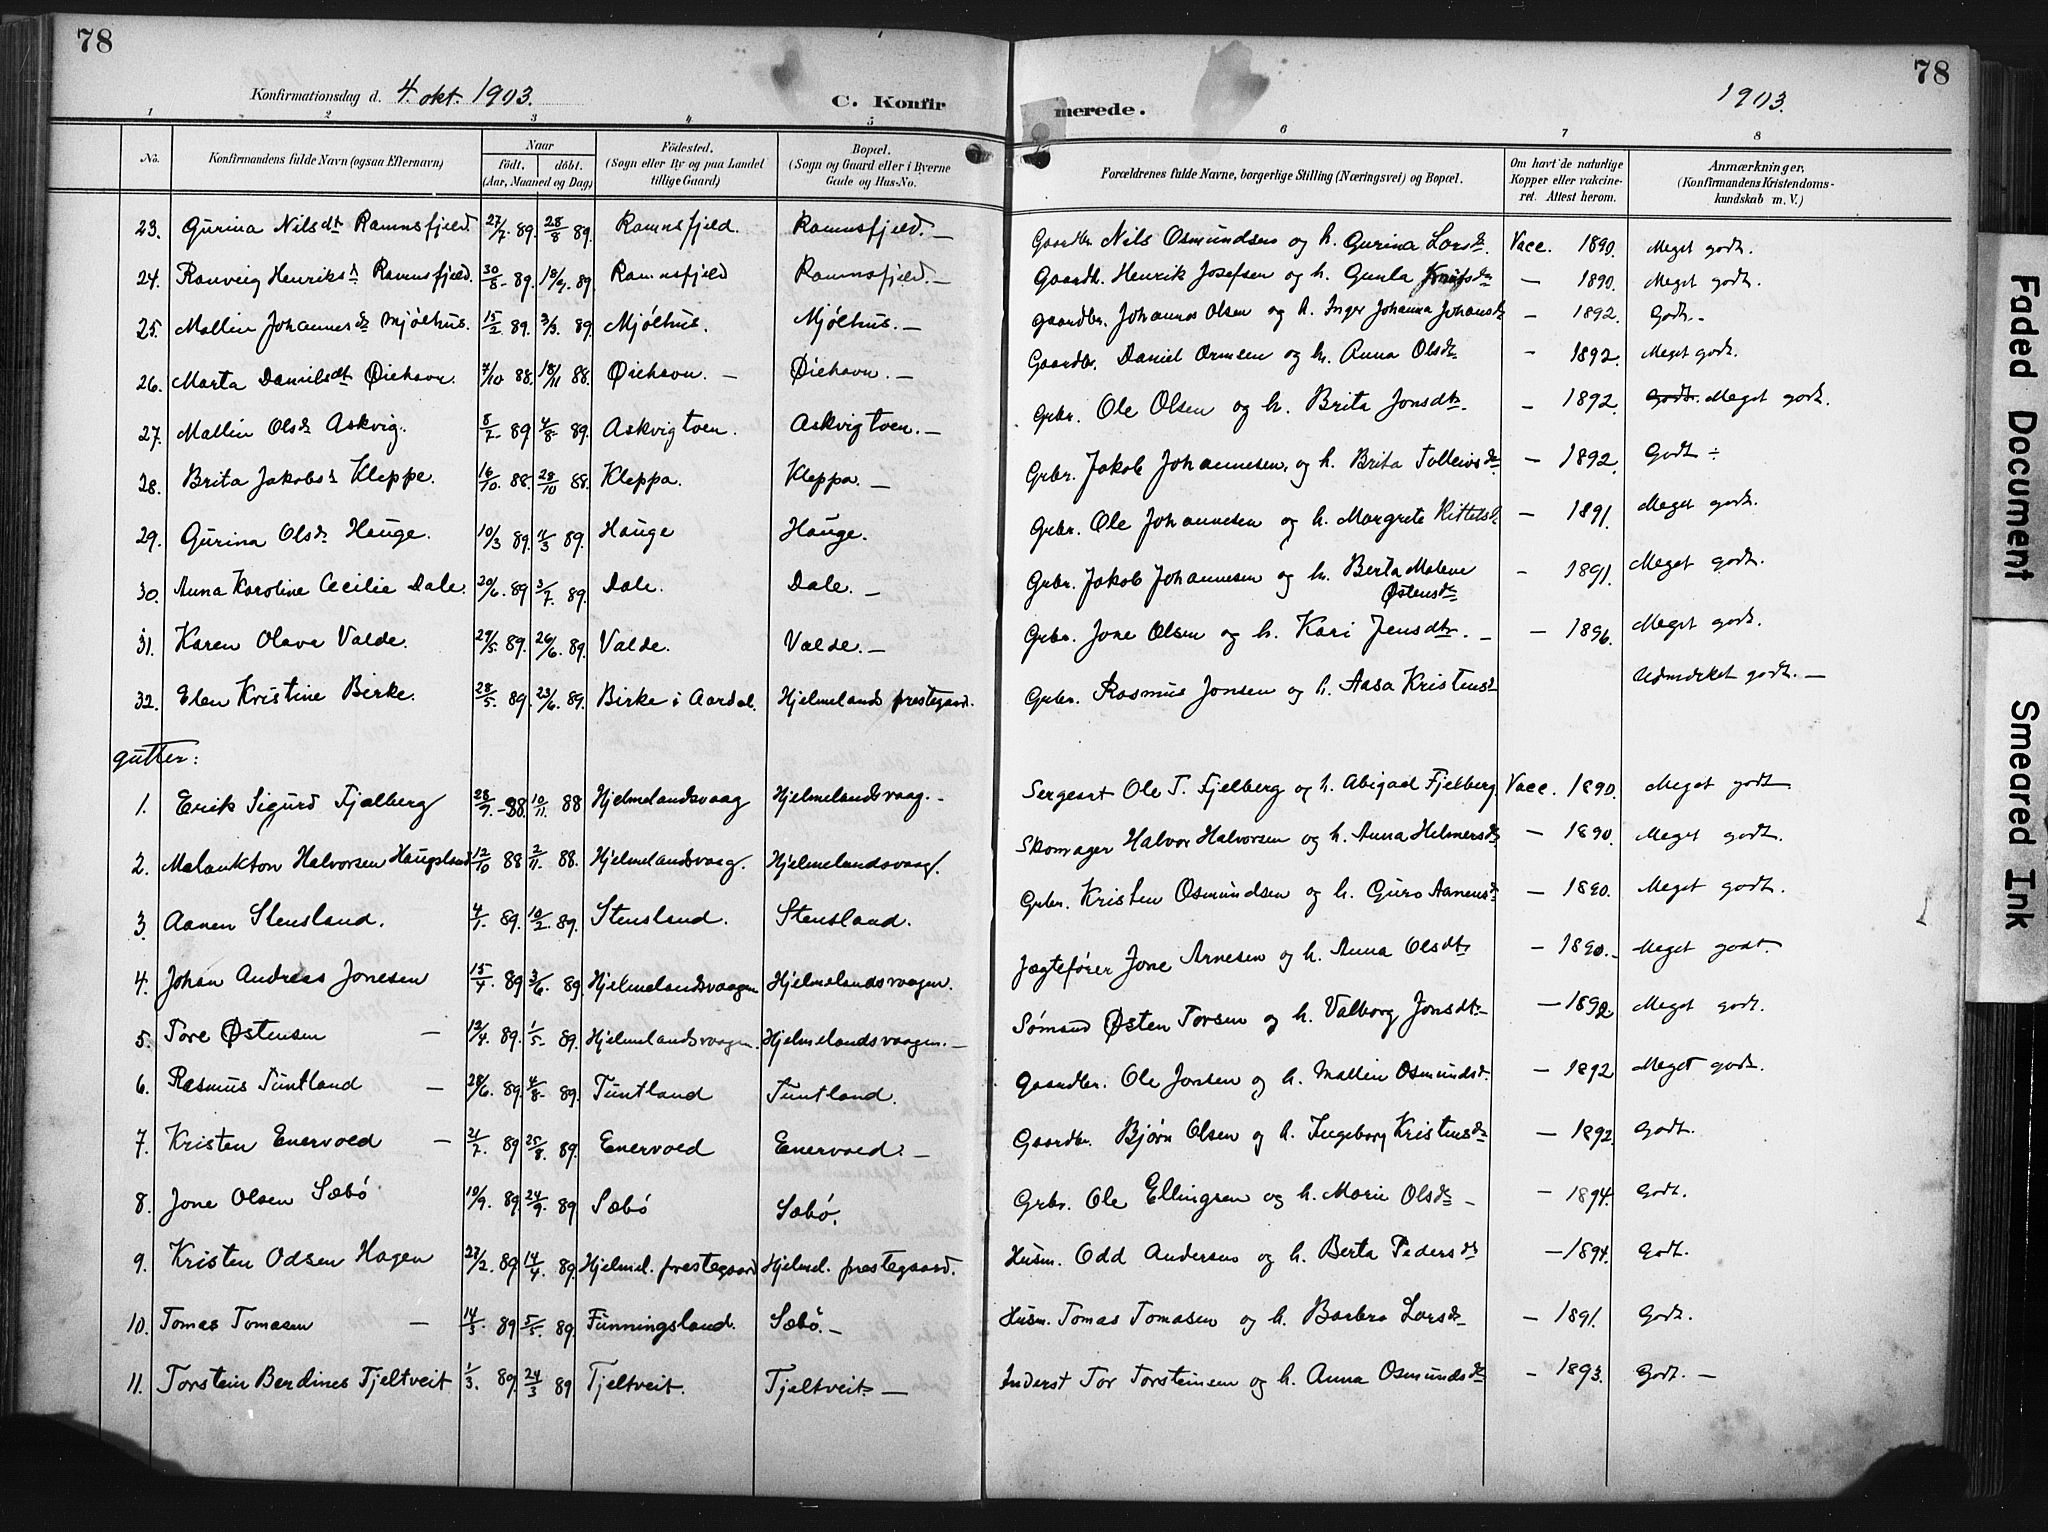 78
78
Konfirmationsdag d. 4. okt. 1903.
C. Konfirmerede.
1903.
1 2 3 4 5 6 7 8
No. Konfirmandens fulde Navn (ogsaa Efternavn) Naar födt. döbt. (Aar, Maaned og Dag) Födested. (Sogn eller By og paa Landet tillige Gaard) Bopæl. (Sogn og Gaard eller i Byerne Gade og Hus-No. Forældrenes fulde Navne, borgerlige Stilling (Næringsvei) og Bopæl. Om havt de naturlige Kopper eller vakcineret. Attest herom. Anmærkninger. (Konfirmandens Kristendomskundskab m. V.)
23. Gurina Nilsdt Ramnsfjeld 27/7. 89. 28/8 89. Ramnsfjeld. Ramnsfjeld. — Gaardbr. Nils Osmundsen og h. Gurina Larsdt. Vacc. 1890. Meget godt.
24. Ranveig Henriksdt Ramnsfjeld. 30/8 89. 18/9. 89. Ramnsfjeld Ramnsfjeld. — Gaardb. Henrik Josefsen og h. Gunla — 1890. Meget godt.
25. Mallin Johannesdt Mjølhus. 15/2. 89. 3/3. 89. Mjølhus. Mjølhus. — Gaardbr. Johannes Olsen og h. Inger Johanna Johansdt — 1892. Godt. -
26. Marta Danielsdt Øiehavn. 7/10 88. 18/11 88. Øiehavn. — Øiehavn. — Gaardbr. Daniel Ormsen og h. Anna Olsdt. — 1892. Meget godt.
27. Mallin Olsdt Askvig. 8/7 89 4/8 89. Askvigtven. Askvigtven. — Grbr. Ole Olsen og h. Brita Jonsdtr. — 1892. Godt. Meget godt.
28. Brita Jakobsdt Kleppe. 16/10. 88. 28/10 88. Kleppa. Kleppa. — Grbr. Jakob Johannesen, og h. Brita Tolleivsdt — 1892. Godt ÷
29. Gurina Olsdt Hauge. 10/3 89. 11/3 89. Hauge Hauge. Grbr. Ole Johannesen og h. Margrete Kittelsdt — 1891. Meget godt.
30. Anna Karoline Cecilie Dale. 20/6. 89 3/7. 89. Dale. Dale. — Grbr. Jakob Johannesen og h. Berta Malene Østensdt — 1891. Meget godt.
31. Karen Olava Valde. 29/5. 89. 26/6. 89. Valde. Valde. — Grbr. Jone Olsen og h. Kari Jensdtr. — — 1896. Meget godt.
32. Elen Kristine Birke. 28/5. 89. 23/6. 89. Birke i Aardal. Hjelmelands prestegaard. Grbr. Rasmus Jonsen og h. Aasa Kristensdt Udmærket godt. —
gutter:
1. Erik Sigurd Fjælberg 28/9. 88. 10/11. 88 Hjelmelandsvaag Hjelmelandsvaag. — Sergeant Ole T. Fjelberg og h. Abigael Fjelberg. Vacc. 1890. Meget godt
2. Melankton Halvorsen Haugsland 12/10 88 2/11. 88. Hjelmelandsvaag. Hjelmelandsvaag. Skomager Halvor Halvorsen og h. Anna Helmersdt — 1890. Meget godt.
3. Aanen Stensland. 4/1. 89. 10/2. 89. Stensland. Stensland. Grbr. Kristen Osmundsen og h. Guro Aanensdt — 1890. Meget godt.
4. Johan Andreas Jonesen 15/4. 89 3/6. 89. Hjelmelandsvaagen Hjelmelandsvaagen. Jægtefører Jone Arnesen og h. Anna Olsdtr — 1890. - Meget godt.
5. Tore Østensen — 13/4. 89. 1/5. 89. Hjelmelandsvaagen. Hjelmelandsvaagen. — Sømand Østen Torsen og h. Valborg Jonsdtr — 1892. Meget godt.
6. Rasmus Tuntland — 28/6. 89. 4/8. 89. Tuntland Tuntland. Gaardbr. Ole Jonsen og h. Mallin Osmundsdt. — 1892 Meget godt.
7. Kristen Enervoed — 21/7. 89 25/8. 89. Enervoed Enervoed. — Gaardbr. Bjørn Olsen og h. Ingeborg Kristensdt — 1892. Godt.
8. Jone Olsen Sæbø 10/9. 89 24/9. 89 Sæbø Sæbø. Grbr. Ole Ellingsen og h. Marie Olsdt — — 1894. Godt.
9. Kristen Odsen Hagen 27/2. 89 14/4. 89. Hjelmel. prestegaard Hjelmel. prestegaard. Husm. Odd Andersen og h. Berta Pedersdt — 1894. Godt.
10. Tomas Tomasen — 14/3. 89 5/5. 89. Funningsland. Sæbø. — Husm. Tomas Tomasen og h. Barbra Larsdt — 1891. Godt.
11. Torstein Berdines Tjeltveit 1/3. 89. 24/3 89 Tjeltveit. Tjeltveit — Inderst Tor Torsteinsen og h. Anna Osmundsdt — 1893. Godt. —
Faded Document
Smeared Ink